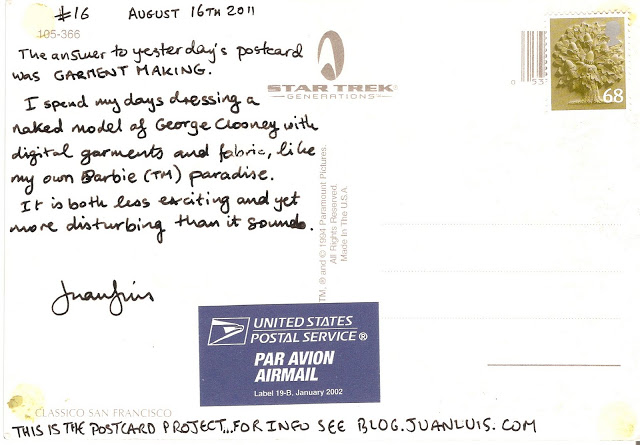 #16 AUGUST 16TH 2011
105-366
The answer to yesterday's postcard
was GARMENT MAKING.
I spend my days dressing a
naked model of George Clooney with
digital garments and fabric, like
my own Barbie (TM) paradise.
It is both less exciting and yet
more disturbing than it sounds.
JuanLuis
STAR TREK®
GENERATIONS
0 53
68
TM, ® and © 1994 Paramount Pictures.
All Rights Reserved.
Made In The U.S.A.
UNITED STATES
POSTAL SERVICE®
PAR AVION
AIRMAIL
Label 19-B, January 2002
CLASSICO SAN FRANCISCO
THIS IS THE POSTCARD PROJECT...FOR INFO SEE BLOG.JUANLUIS.COM